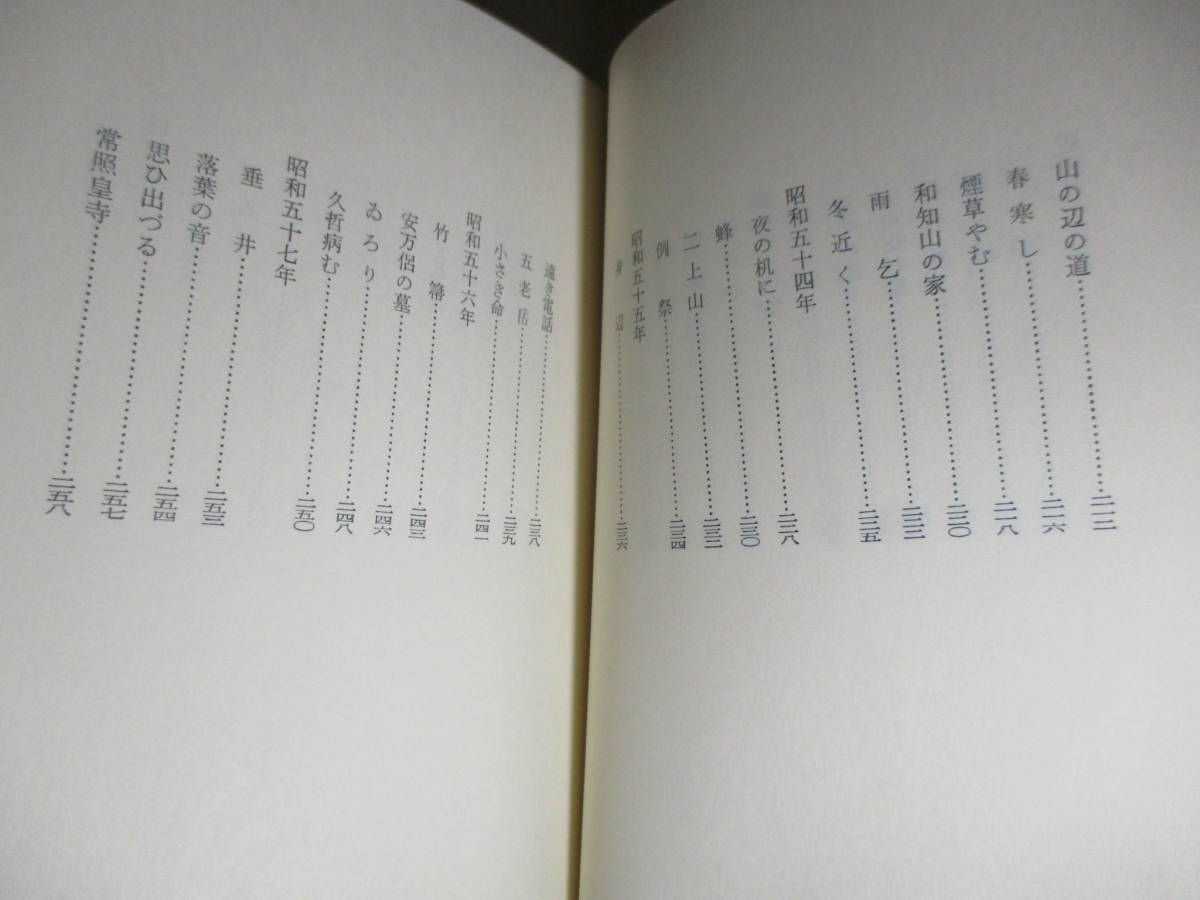 山の辺の道……………………二一二
春寒し……………………二一六
煙草やむ……………………二一八
和知山の家……………………二二〇
雨乞……………………二二二
冬近く……………………二二五
昭和五十四年
夜の机に……………………二二八
蜂……………………二三〇
二上山……………………二三二
例祭……………………二三四
昭和五十五年
身辺……………………二三六
遠き電話……………………二三八
五老岳……………………二三九
小さき命……………………二四一
昭和五十六年
竹箒……………………二四三
安万侶の墓……………………二四六
ゐろり……………………二四八
久哲病む……………………二五〇
昭和五十七年
垂井……………………二五三
落葉の音……………………二五四
思ひ出づる……………………二五七
常照皇寺……………………二五八